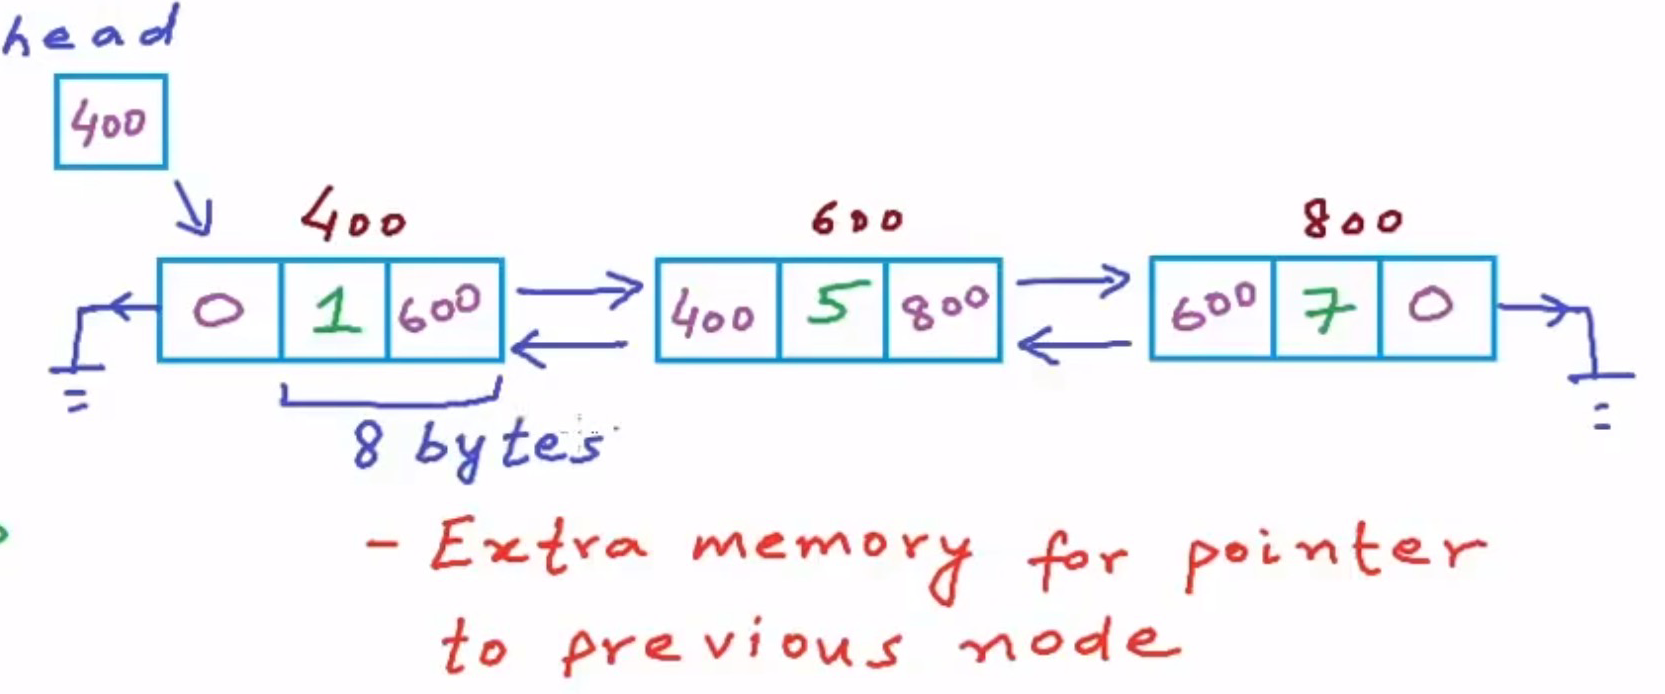 head
400
400 600 800
0 1 600 400 5 800 600 7 0
8 bytes
- Extra memory for pointer
to previous node